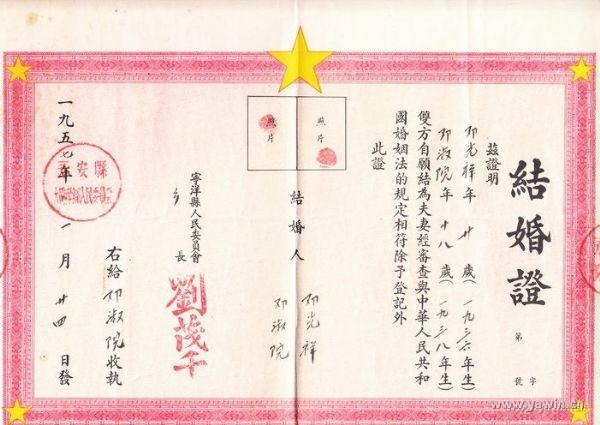 結婚證
字
第
號
茲證明
邓光祥 年 廿 歲(一九三六年生)
邓淑院 年 十八 歲(一九三八年生)
雙方自願結為夫妻經審查與中華人民共和
國婚姻法的規定相符除予登記外
此證
照片
照片
結婚人
邓光祥
邓淑院
寧洋縣人民委員會
乡
長
劉茂千
右給 邓淑院 收執
一九五七年 一月 廿四 日發
安縣
www.yawin.cn